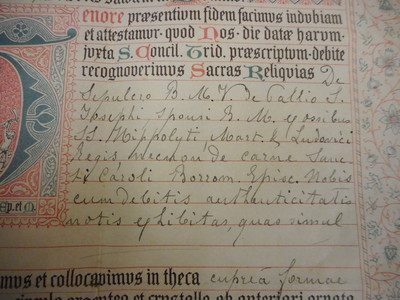 Tenore præsentium fidem facimus indubiam
et attestamur, quod Nos, die datæ harum,
juxta S. Concil. Trid. præscriptum, debite
recognoverimus Sacras Reliquias De
Sepulcro B. M. V. de Pallio S.
Josephi Sponsi B. M. y ossibus
SS. Hippolyti, Mart. & Ludovici
Regis, necnon de carne Sanc
ti Caroli Borrom. Episc. Nobis
cum debitis authenticitatis
notis exhibitas, quas simul
Ep. et M.
imus et collocavimus in theca cupreâ formae
argenteo et crystallo ab anteriori ornata